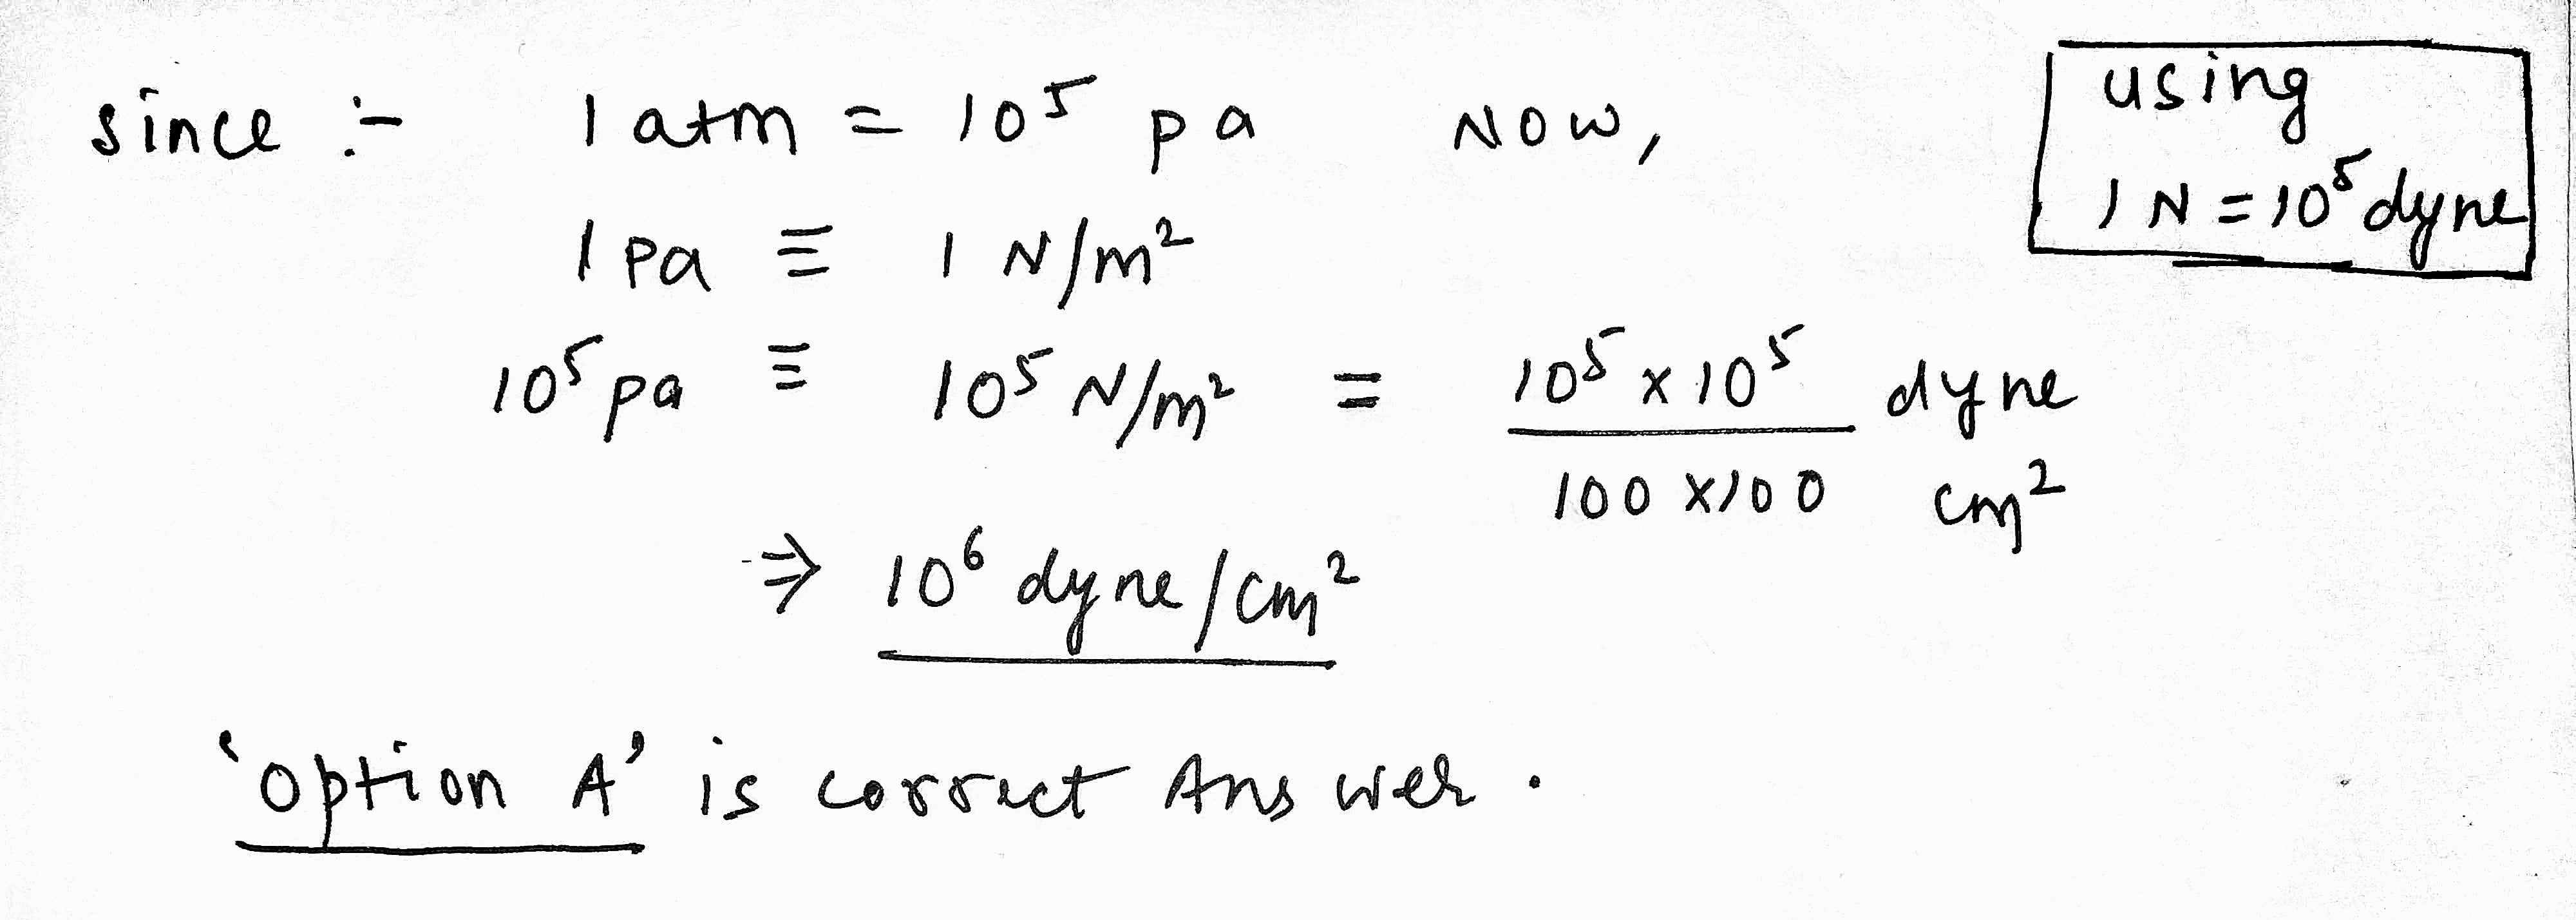 since :- 1 atm = 10⁵ pa Now,
using
1 N = 10⁵ dyne
1 Pa ≡ 1 N/m²
10⁵ pa ≡ 10⁵ N/m² = 10⁵ x 10⁵ dyne
100 x 100 cm²
⇒ 10⁶ dyne/cm²
'option A' is correct Answer.